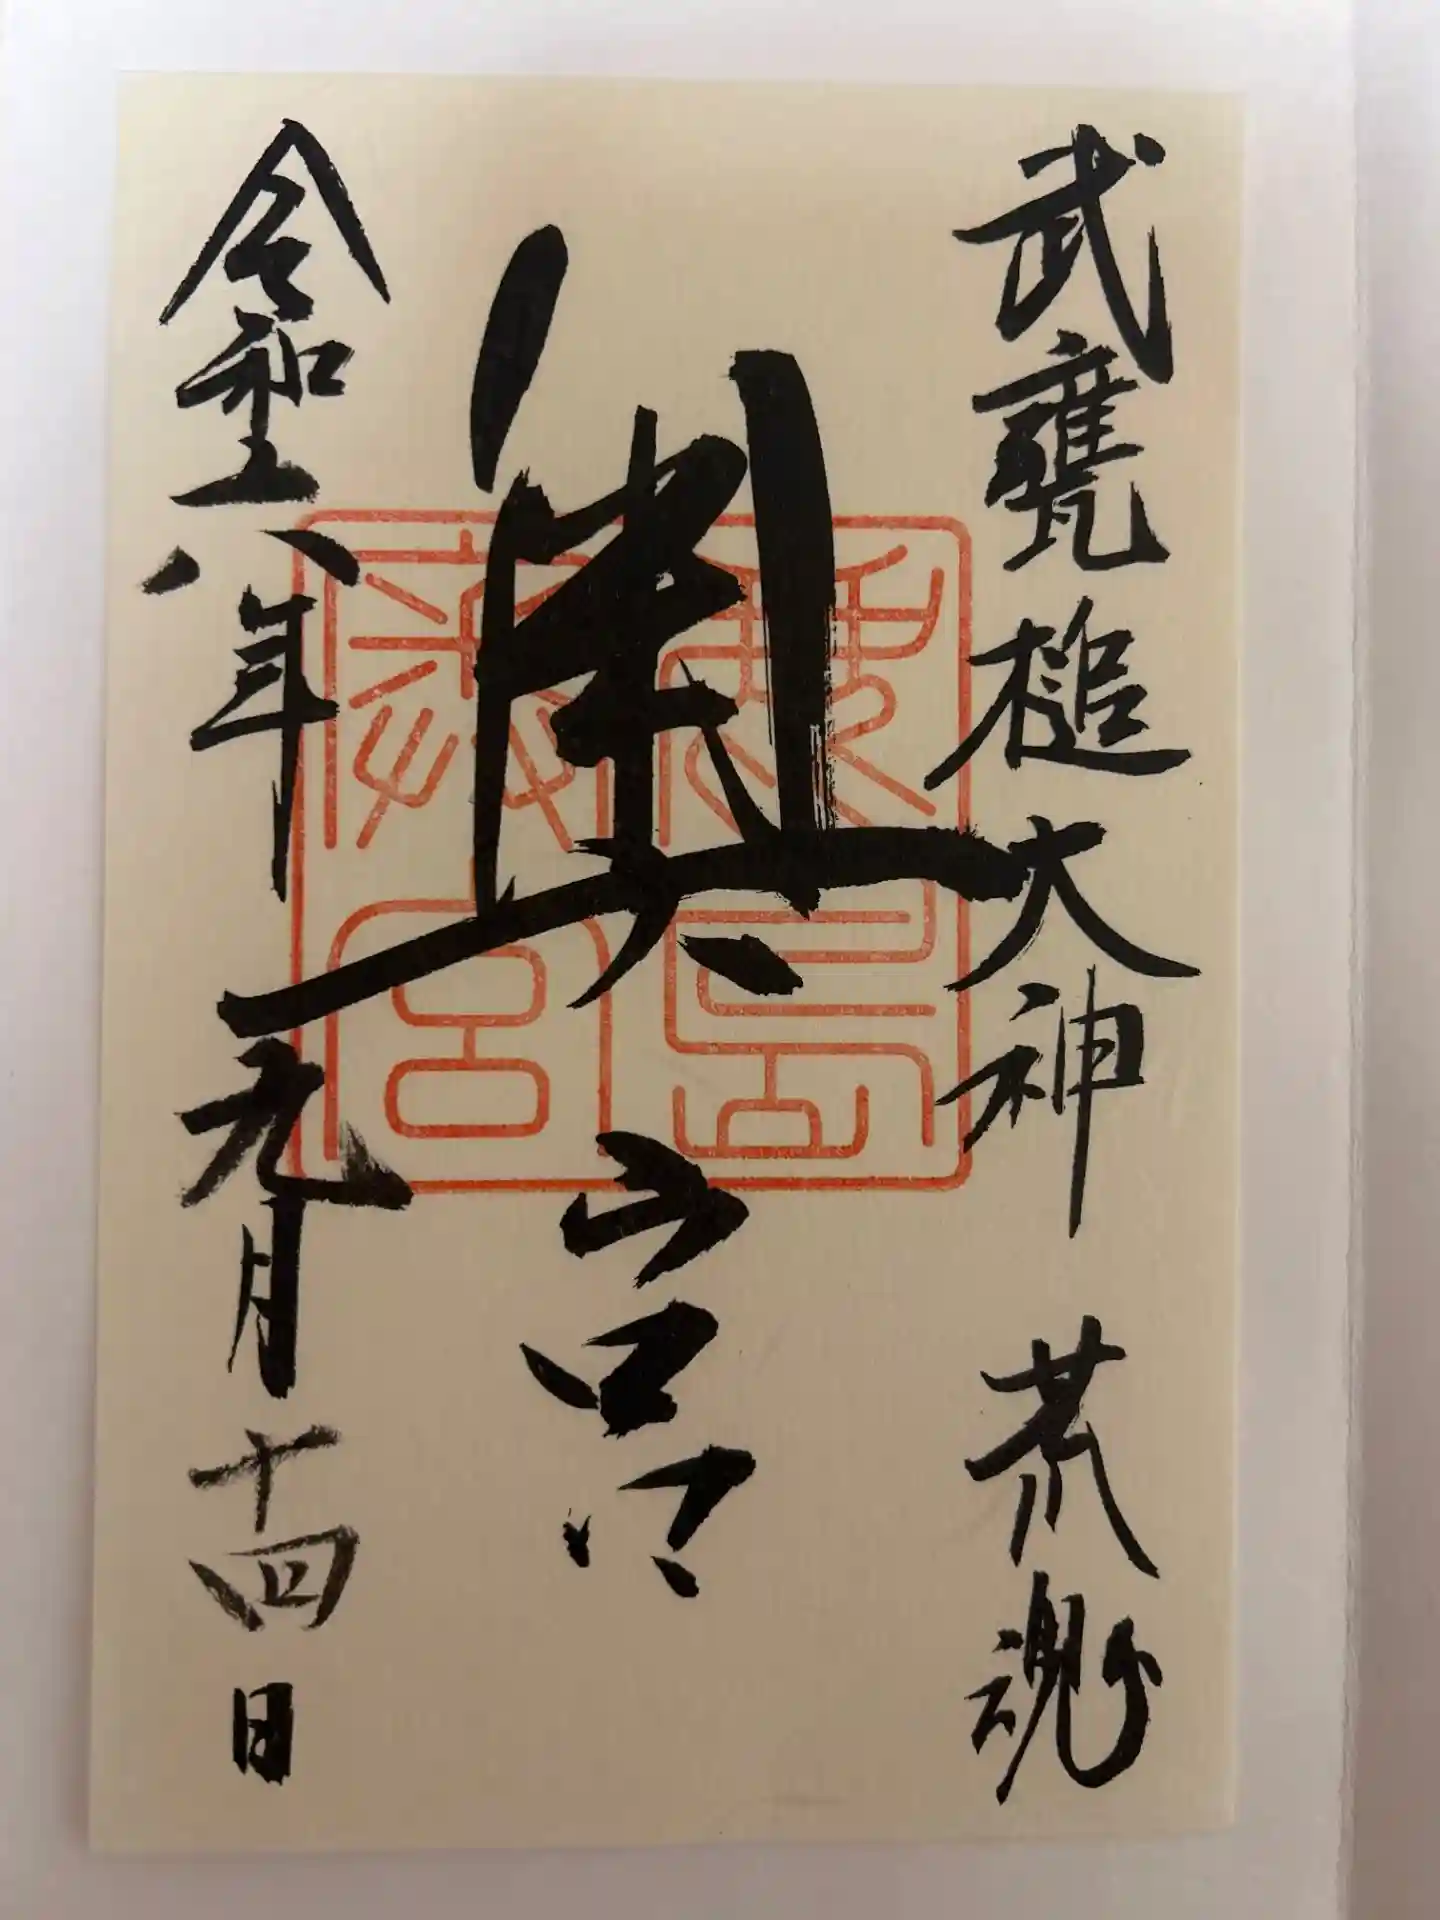 武甕槌大神 荒魂
奥宮
令和六年九月十四日
鹿島
奥宮